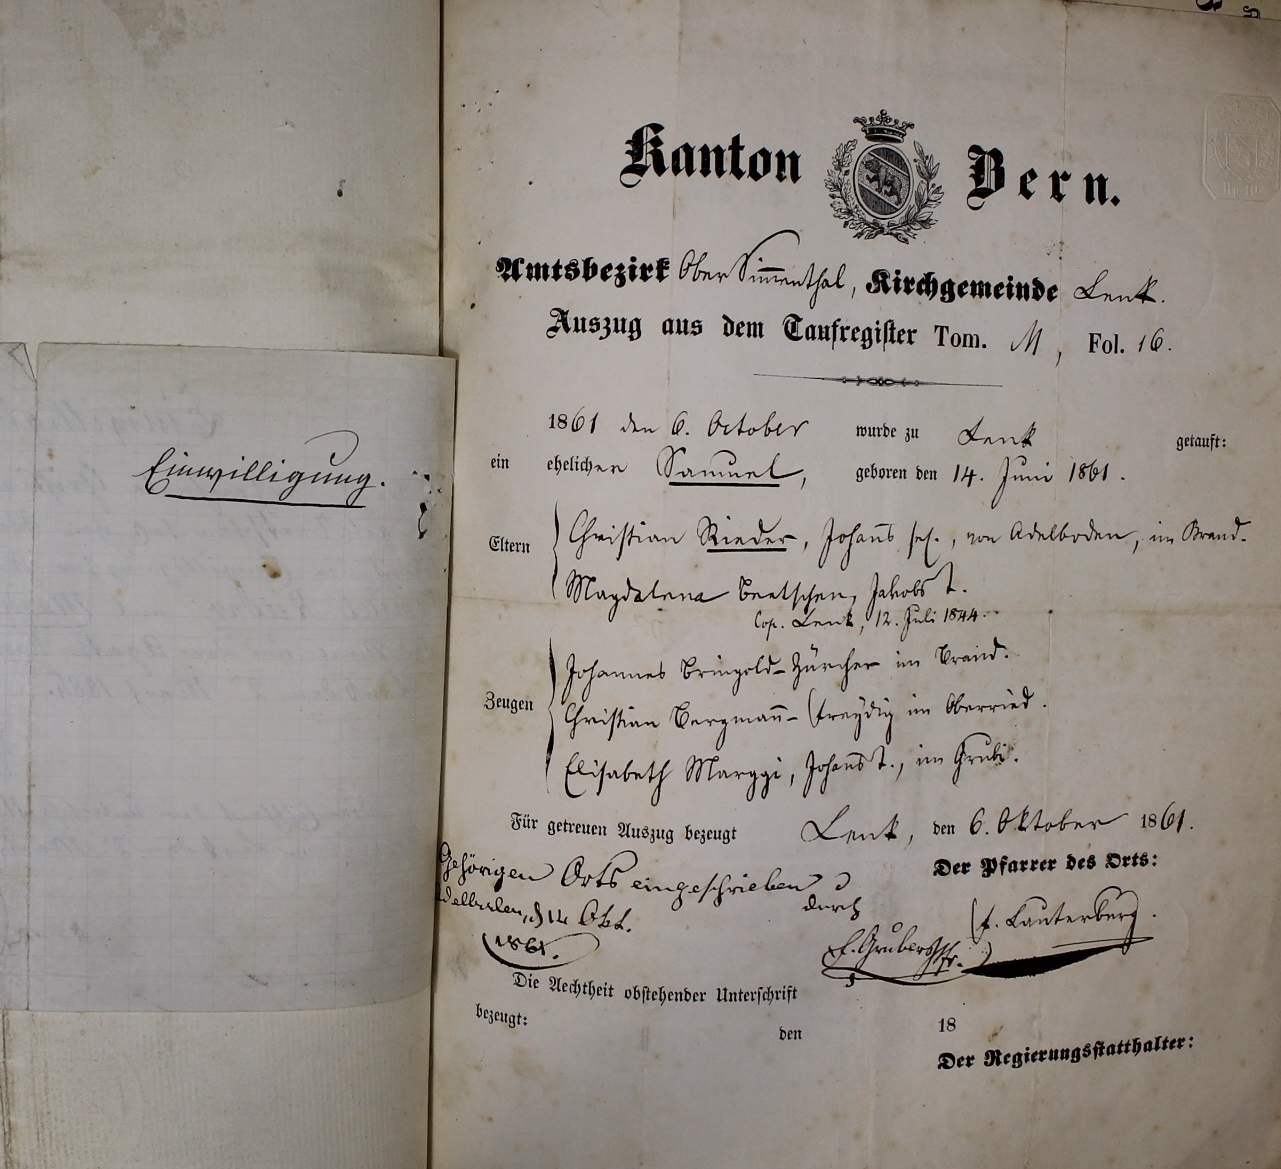 Einwilligung.
Kanton Bern.
Amtsbezirk Ober Simmenthal, Kirchgemeinde Lenk.
Auszug aus dem Taufregister Tom. M, Fol. 16.
1861 den 6. October wurde zu Lenk getauft:
ein ehelicher Samuel, geboren den 14. Juni 1861.
Eltern
Christian Rieder, Johan̄s sel., von Adelboden, im Brand.
Magdalena Beetschen, Jakobs T.
Cop. Lenk, 12. Juli 1844.
Zeugen
Johannes Bringold-Zürcher im Brand.
Christian Bergman̄-Freydig im Oberried.
Elisabeth Marggi, Johan̄s T., im Grubi.
Für getreuen Auszug bezeugt Lenk, den 6. Oktober 1861.
Der Pfarrer des Orts:
Gehörigen Orts eingeschrieben durch
Adelboden, d 14 Okt.
1861.
F. Lauterburg.
Die Aechtheit obstehender Unterschrift
bezeugt: den 18
Der Regierungsstatthalter: